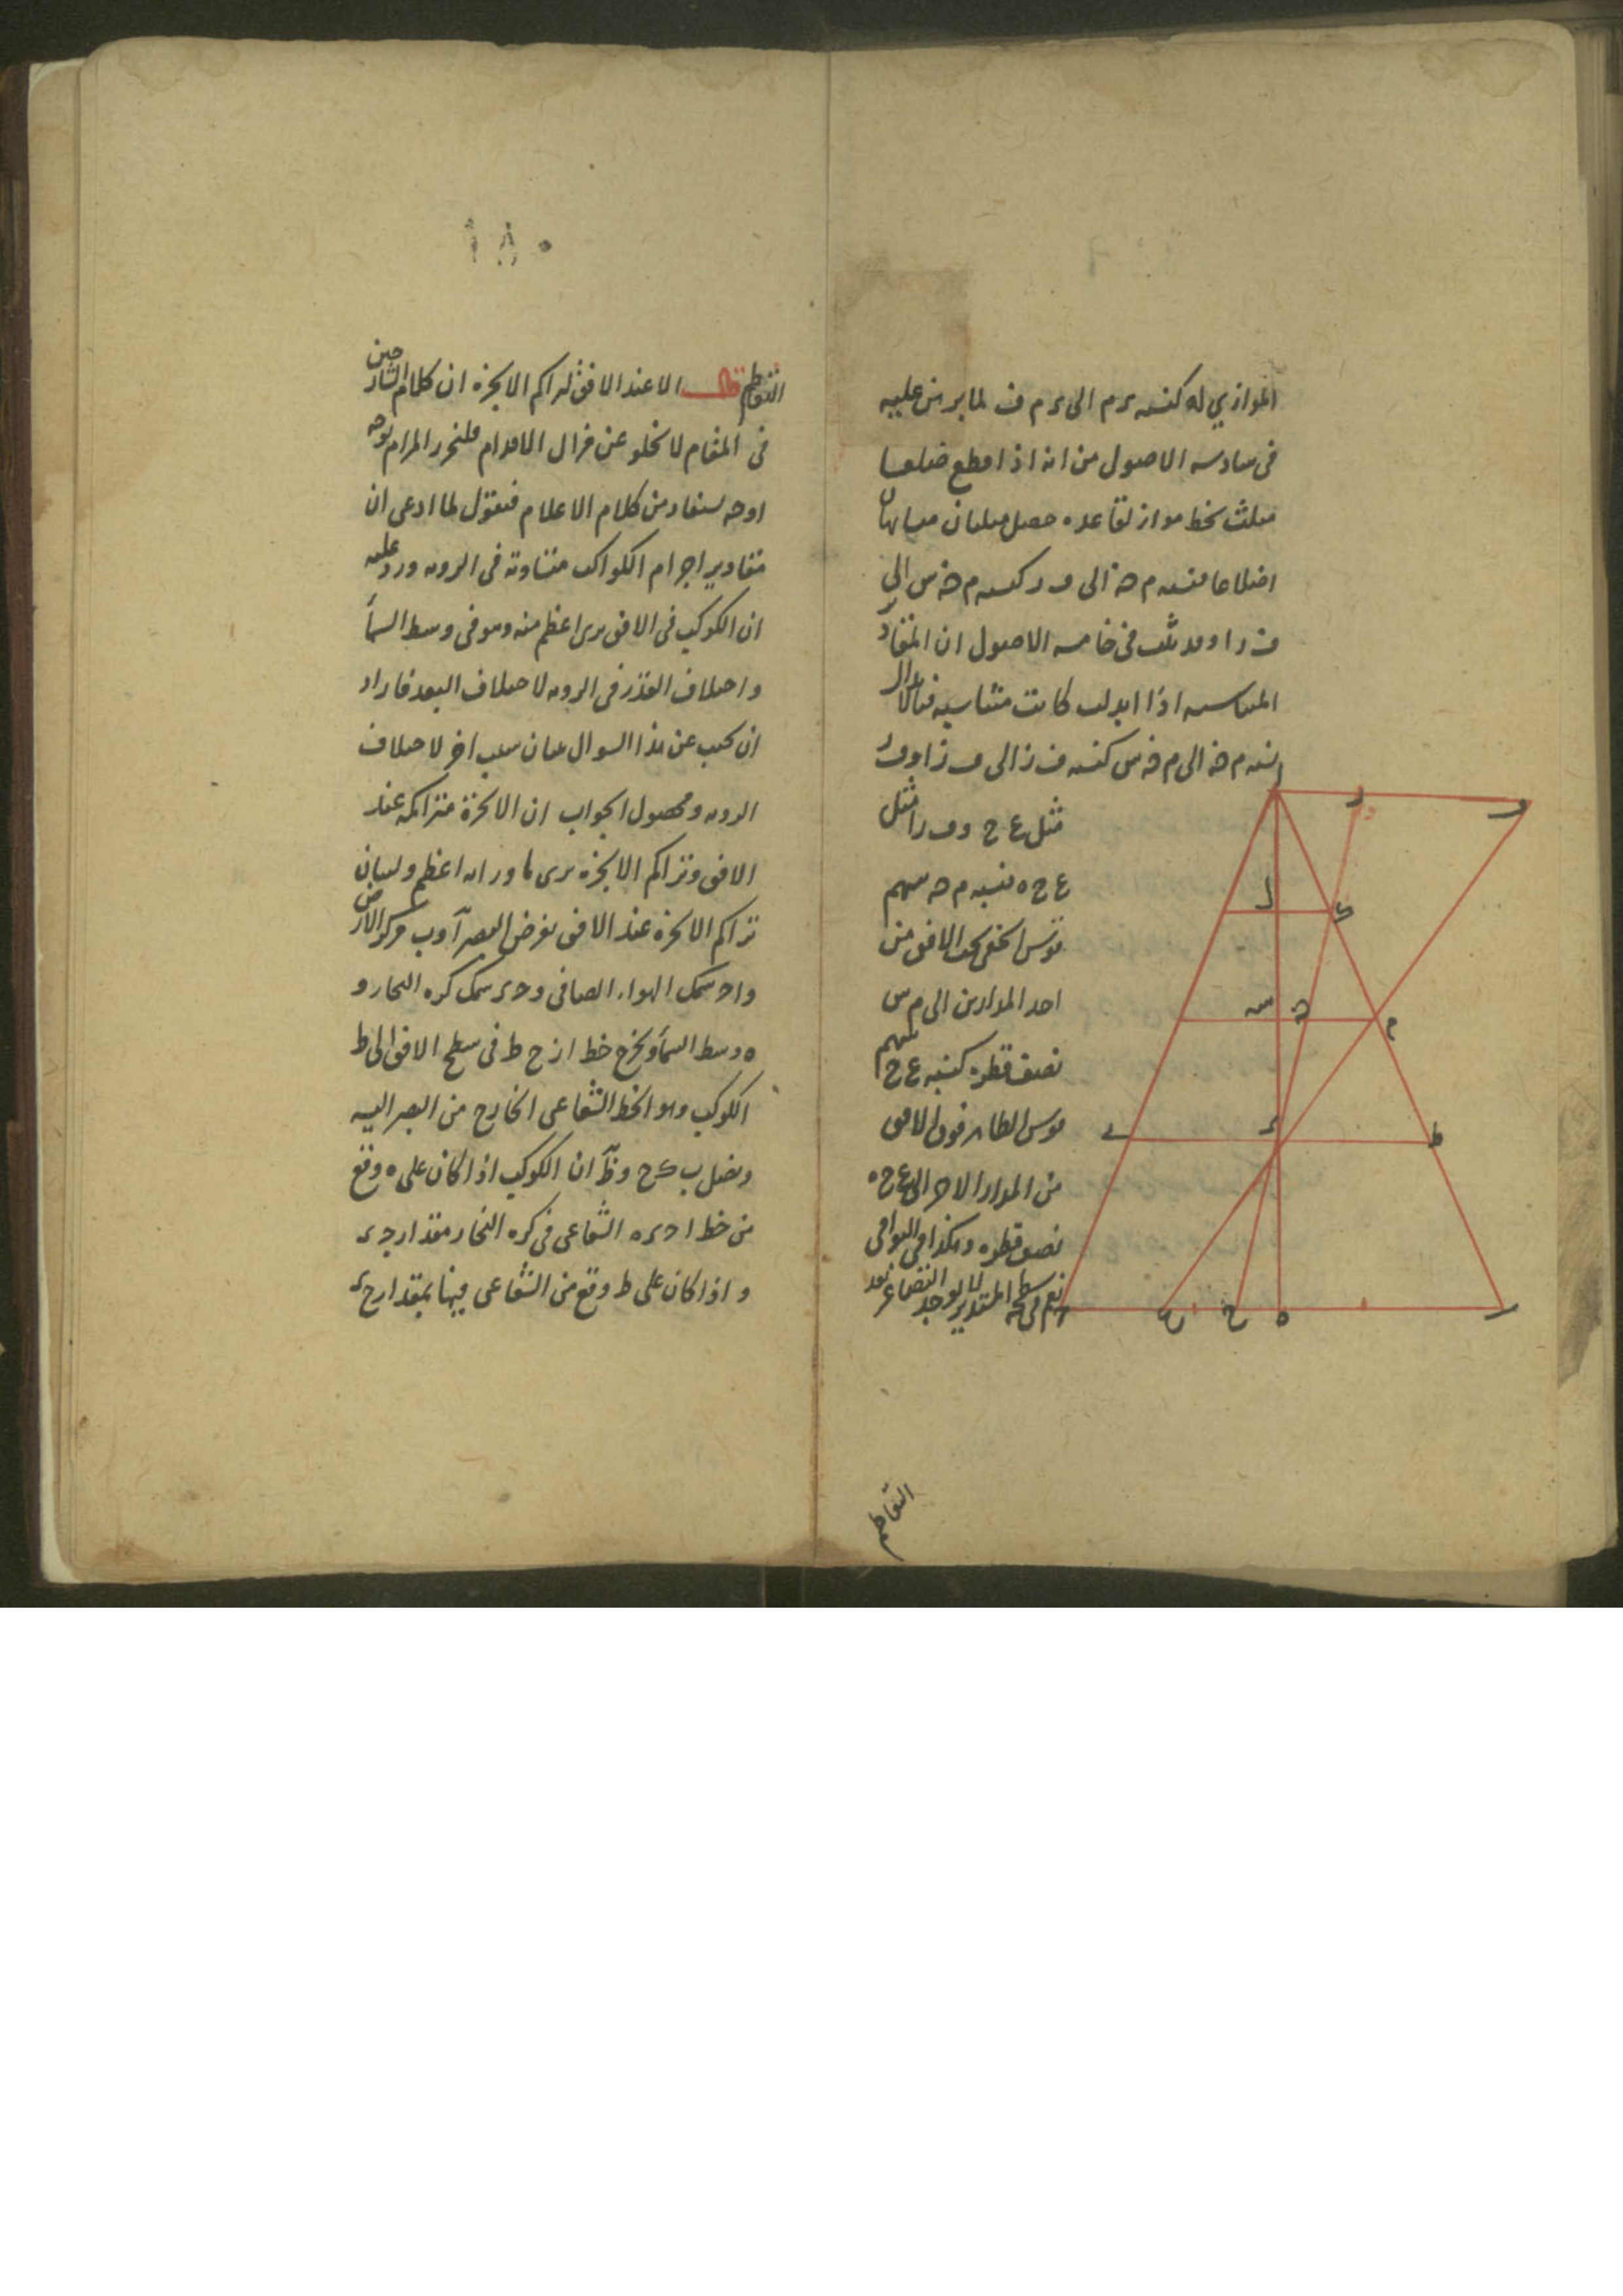 الموازي له كنسبه ى م الى ى م ف لما برهن عليه
فى سادسه الاصول من انه اذا قطع ضلعا
مثلث بخط مواز لقاعده حصل مثلثان متشابهان
اضلاعا فنسبه م ه الى ف ر كنسبه م ه س الى
ف ر ا وقد ثبت فى خامسه الاصول ان المقادير
المتناسبه اذا ابدلت كانت متناسبه فبالابدال
نسبه م ه الى م ه س كنسبه ف ر الى ف ر ا وف ر
مثل ع ح وف ر ا مثل
ع ح ه فنسبه م ه سهم
قوس الخفى تحت الافق من
احد المدارين الى م س
نصف قطره كنسبه ع ح سهم
قوس الظاهر فوق الافق
من المدار الاخر الى ع ح ه
نصف قطره وهكذا فى البواقى
نعم فى سطحه المستدير لا يوجد التضاعر بعد
ا
ر
و
ل
ک
س
ه
م
ى
ح
ط
ع
ح
ه
التقاطع
١٨٠
التقاطع قال الا عند الافق لتراكم الابخره ان كلام الشارحين
فى المقام لا يخلو عن مزال الاقدام فلنحرر المرام بوجه
اوجه يستفاد من كلام الاعلام فنقول لما ادعى ان
مقادير اجرام الكواكب متساوته فى الرويه ورد عليه
ان الكوكب فى الافق يرى اعظم منه وهو فى وسط السمأ
واختلاف القدر فى الرويه لاختلاف البعد فاراد
ان يجيب عن هذا السوال ببيان سبب اخر لاختلاف
الرويه ومحصول الجواب ان الابخرة متراكمه عند
الافق وتراكم الابخره يرى ما وراءه اعظم ولبيان
تراكم الابخره عند الافق نفرض البصر آ وب مركز الارض
وا ح سمك الهواء الصافى و ح ى سمك كره البخار و
ه وسط السمأ ونخرج خط ا ز ح ط فى سطح الافق الى ط
الكوكب وهو الخط الشعاعى الخارج من البصر اليه
ونصل ب ک ح وظآ ان الكوكب اذا كان على ه وقع
من خط ا ح ى ه الشعاعى فى كره البخار مقدار ح ى
و اذا كان على ط وقع من الشعاعى فيها بمقدار ح ک